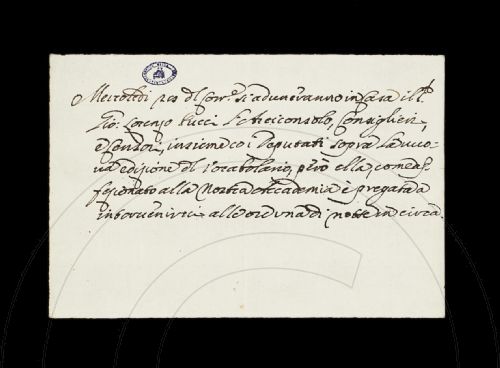 Mercoledì pros. del corr.e si aduneranno in Casa il S.r
Gio: Lorenzo Pucci l'Arciconsolo, Consiglieri,
e Censori, insieme co i Deputati sopra la nuo-
va edizione del Vocabolario, però ella come af-
fezionato alla nostra Accademia è pregata a
intervenirvi alle ore una di notte in circa.